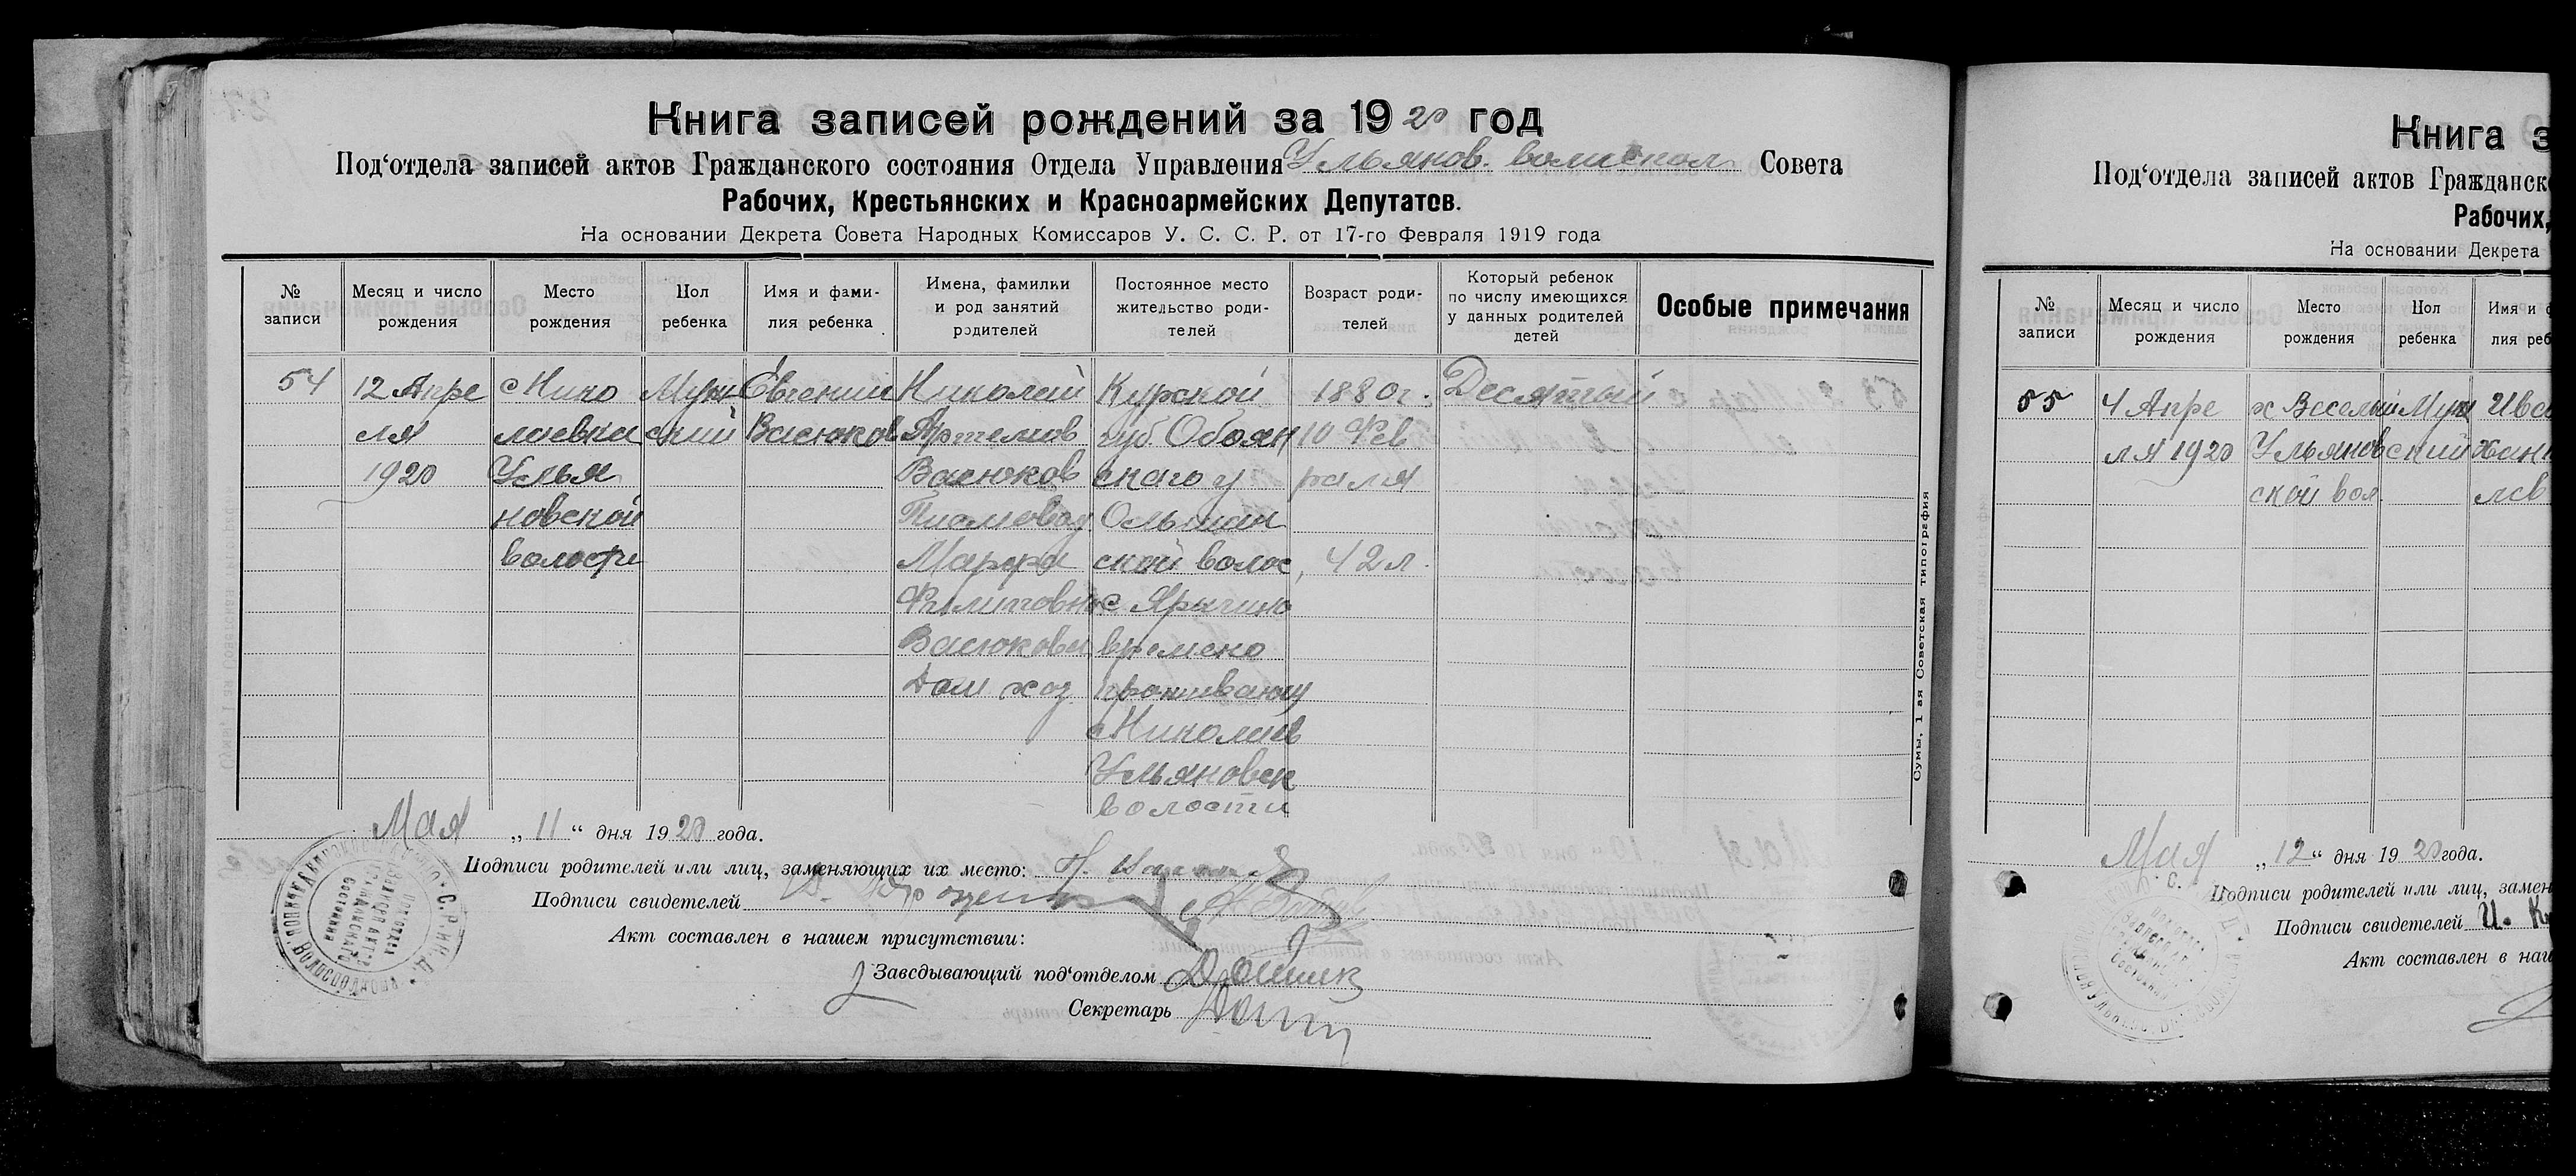 Книга записей рождений за 1920 год
Под'отдела записей актов Гражданского состояния Отдела Управления Ульянов. Совета
Рабочих, Крестьянских и Красноармейских Депутатов.
На основании Декрета Совета Народных Комиссаров У. С. С. Р. от 17-го Февраля 1919 года
№ записи
Месяц и число рождения
Место рождения
Пол ребенка
Имя и фами-
лия ребенка
Имена, фамилии
и род занятий
родителей
Постоянное место
жительство роди-
телей
Возраст роди-
телей
Который ребенок
по числу имеющихся
у данных родителей
детей
Особые примечания
54
12 Апре
ля
1920
с Нико
лаевка
Улья
новской
волости
Муж
ский
Евгений
Васюков
Николай
Артемов
Васюков
Писмовод
Марфа
Филиповна
Васюкова
Дом хоз
Курской
губ. Обоян
скаго у
Ольшан
ской волос
с Ярыгино
времено
проживающ
с Николаев
Ульяновск
волости
1880г.
10 Фев
раля
42 л.
Десятый
Мая „11“ дня 1920 года.
Подписи родителей или лиц, заменяющих их место: Н.
Подписи свидетелей
Акт составлен в нашем присутствии:
Заведывающий под'отделом
Секретарь
Сумы, 1 ая Советская типография
Книга з
Под'отдела записей актов Гражданск
Рабочих,
На основании Декрета
№ записи
Месяц и число рождения
Место рождения
Пол ребенка
Имя и ф
лия реб
55
4 Апре
ля 1920
х Веселый
Ульянов
ской вол.
Муж
ский
Ива
Хан
лов
Мая „12“ дня 1920 года.
Подписи родителей или лиц, замен
Подписи свидетелей И. К
Акт составлен в наш